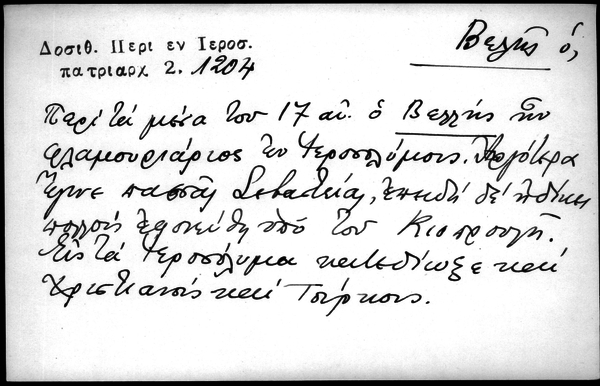 Βελῆς ὁ,
Δοσιθ. Περι εν Ιεροσ.
πατριαρχ 2. 1204
Περὶ τὰ μέσα τοῦ 17 αἰ. ὁ Βελῆς ἦν
φλαμουριάριος ἐν Ἱεροσολύμοις. Ἀργότερα
ἔγινε πασᾶς Σεβαστείας, ἐπειδὴ δὲ ἠδίκει
πολλοὺς ἐφονεύθη ὑπὸ τοῦ Κιοπρουλῆ.
Εἰς τὰ Ἱεροσόλυμα κατεδίωξε καὶ
Χριστιανοὺς καὶ Τούρκους.